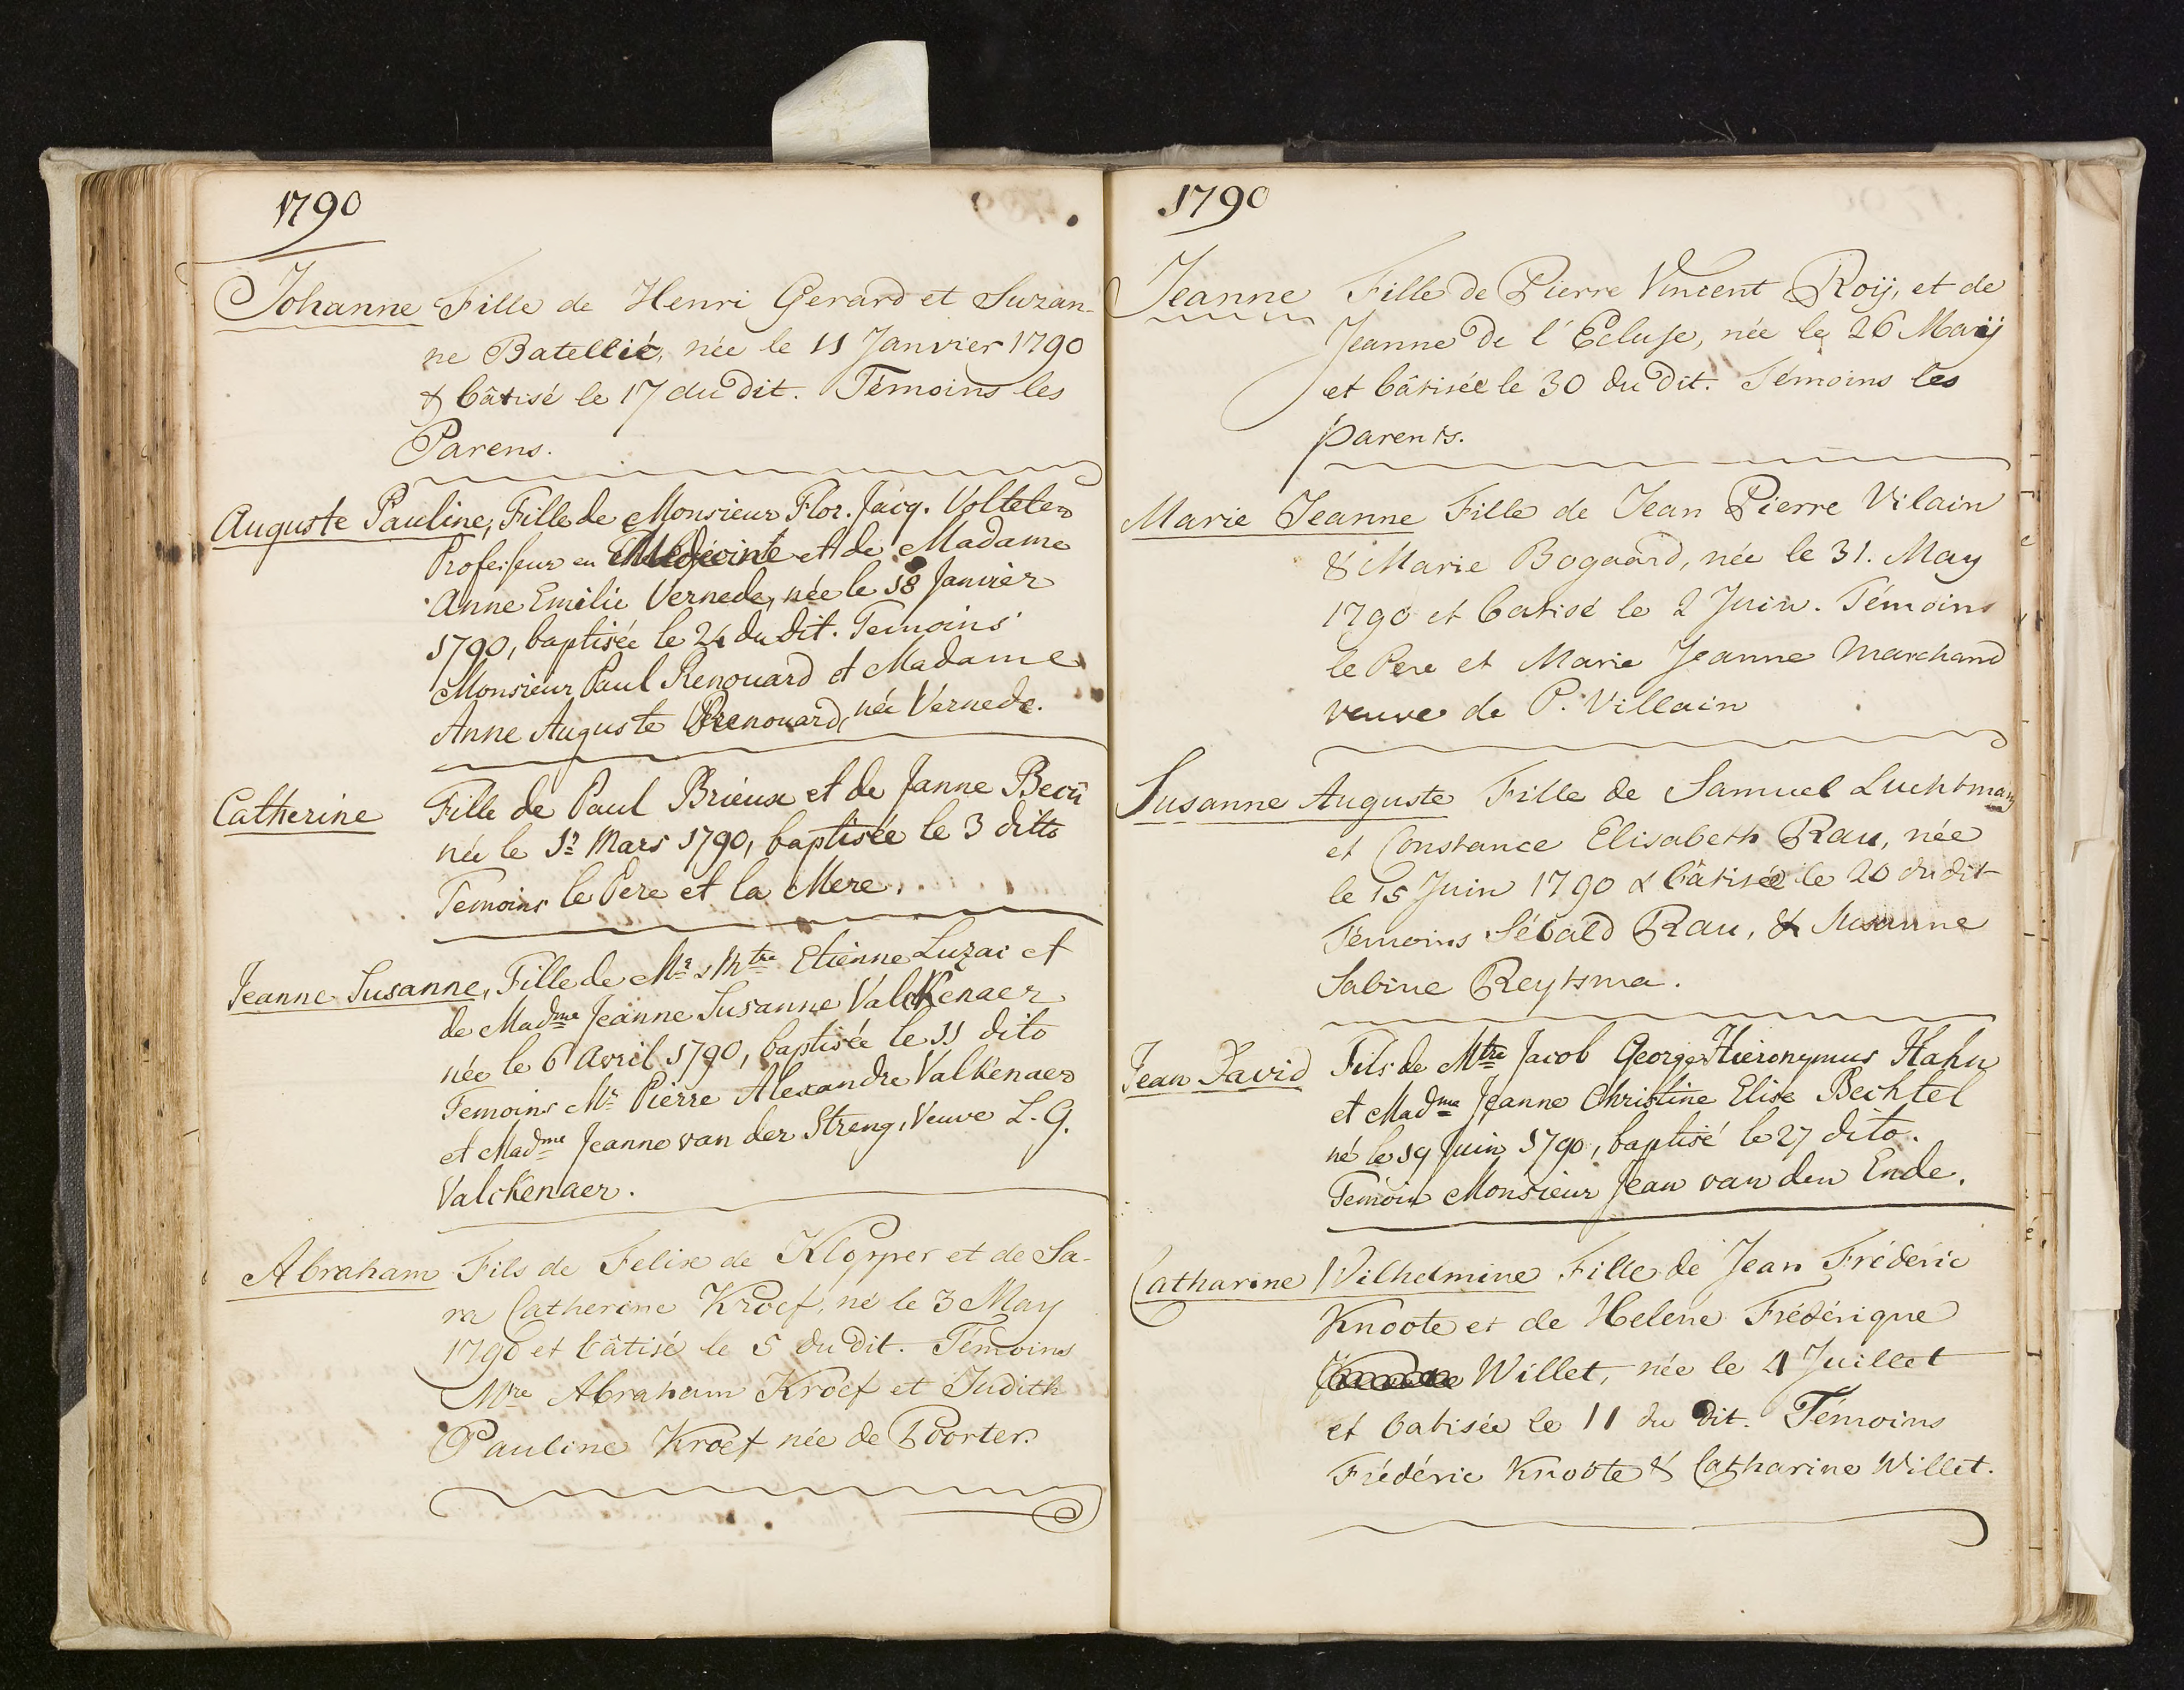 1790
Johanne Fille de Henri Gerard et Suzan-
ne Batellié, née le 11 Janvier 1790
& bâtisé le 17 du dit. Témoins les
Parens.
Auguste Pauline, Fille de Monsieur Flor. Jacq. Voltelen
Professeur en Medecine et de Madame
Anne Emilie Vernede, née le 18 Janvier
1790, baptisée le 24 du dit. Temoins
Monsieur Paul Renouard et Madame
Anne Auguste Renouard, née Vernede.
Catherine Fille de Paul Brieux et de Janne Becü
née le 1r Mars 1790, baptisée le 3 ditto
Temoins le Pere et la Mere.
Jeanne Susanne, Fille de Mr. Mtre Etienne Luzac et
de Madme Jeanne Susanne Valckenaer
née le 6 Avril 1790, baptisée le 11 dito
Temoins Mr Pierre Alexandre Valkenaer
et Madme Jeanne van der Streng, Veuve L. G.
Valckenaer.
Abraham Fils de Felix de Klopper et de Sa-
ra Catherine Kroef, né le 3 May
1790 et bâtisé le 5 du dit. Témoins
Mre Abraham Kroef et Judith
Pauline Kroef née de Poorter.
1790
Jeanne Fille de Pierre Vincent Roij, et de
Jeanne de l'Ecluse, née le 26 Maij
et bâtisée le 30 du dit. Témoins les
parents.
Marie Jeanne Fille de Jean Pierre Vilain
& Marie Bogaard, née le 31. May
1790 et batisé le 2 Juin. Témoins
le Pere et Marie Jeanne Marchand
veuve de P. Villain
Susanne Auguste Fille de Samuel Luchtmans
et Constance Elisabeth Rau, née
le 15 Juin 1790 & bâtisée le 20 du dit
Temoins Sébald Rau, & Susanne
Sabine Reytsma.
Jean David Fils de Mtre Jacob George Hieronymus Hahn
et Madme Jeanne Christine Elise Bechtel
né le 19 Juin 1790, baptisé le 27 dito.
Temoin Monsieur Jean van den Ende.
Catharine Wilhelmine Fille de Jean Fréderic
Knoote et de Helene Fréderique
Willet, née le 4 Juillet
et batisée le 11 du dit. Témoins
Fréderic Knoote & Catharine Willet.